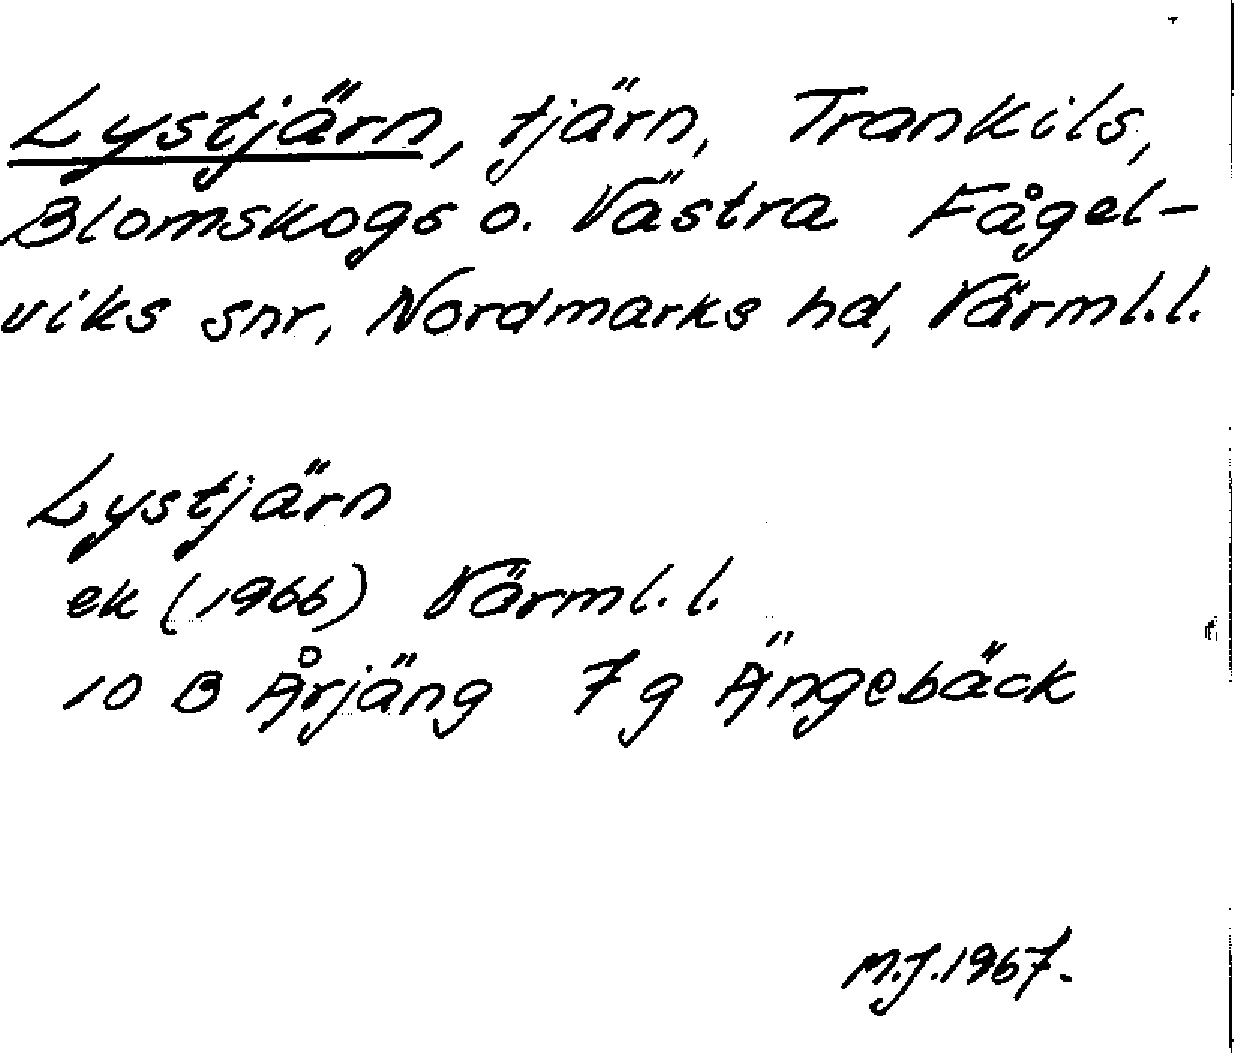 Lystjärn, tjärn, Trankils,
Blomskogs o. Västra Fågel-
viks snr, Nordmarks hd, Värml.l.
Lystjärn
ek (1966) Värml.l.
10 B Årjäng 7 g Ängebäck
M.J.1967.